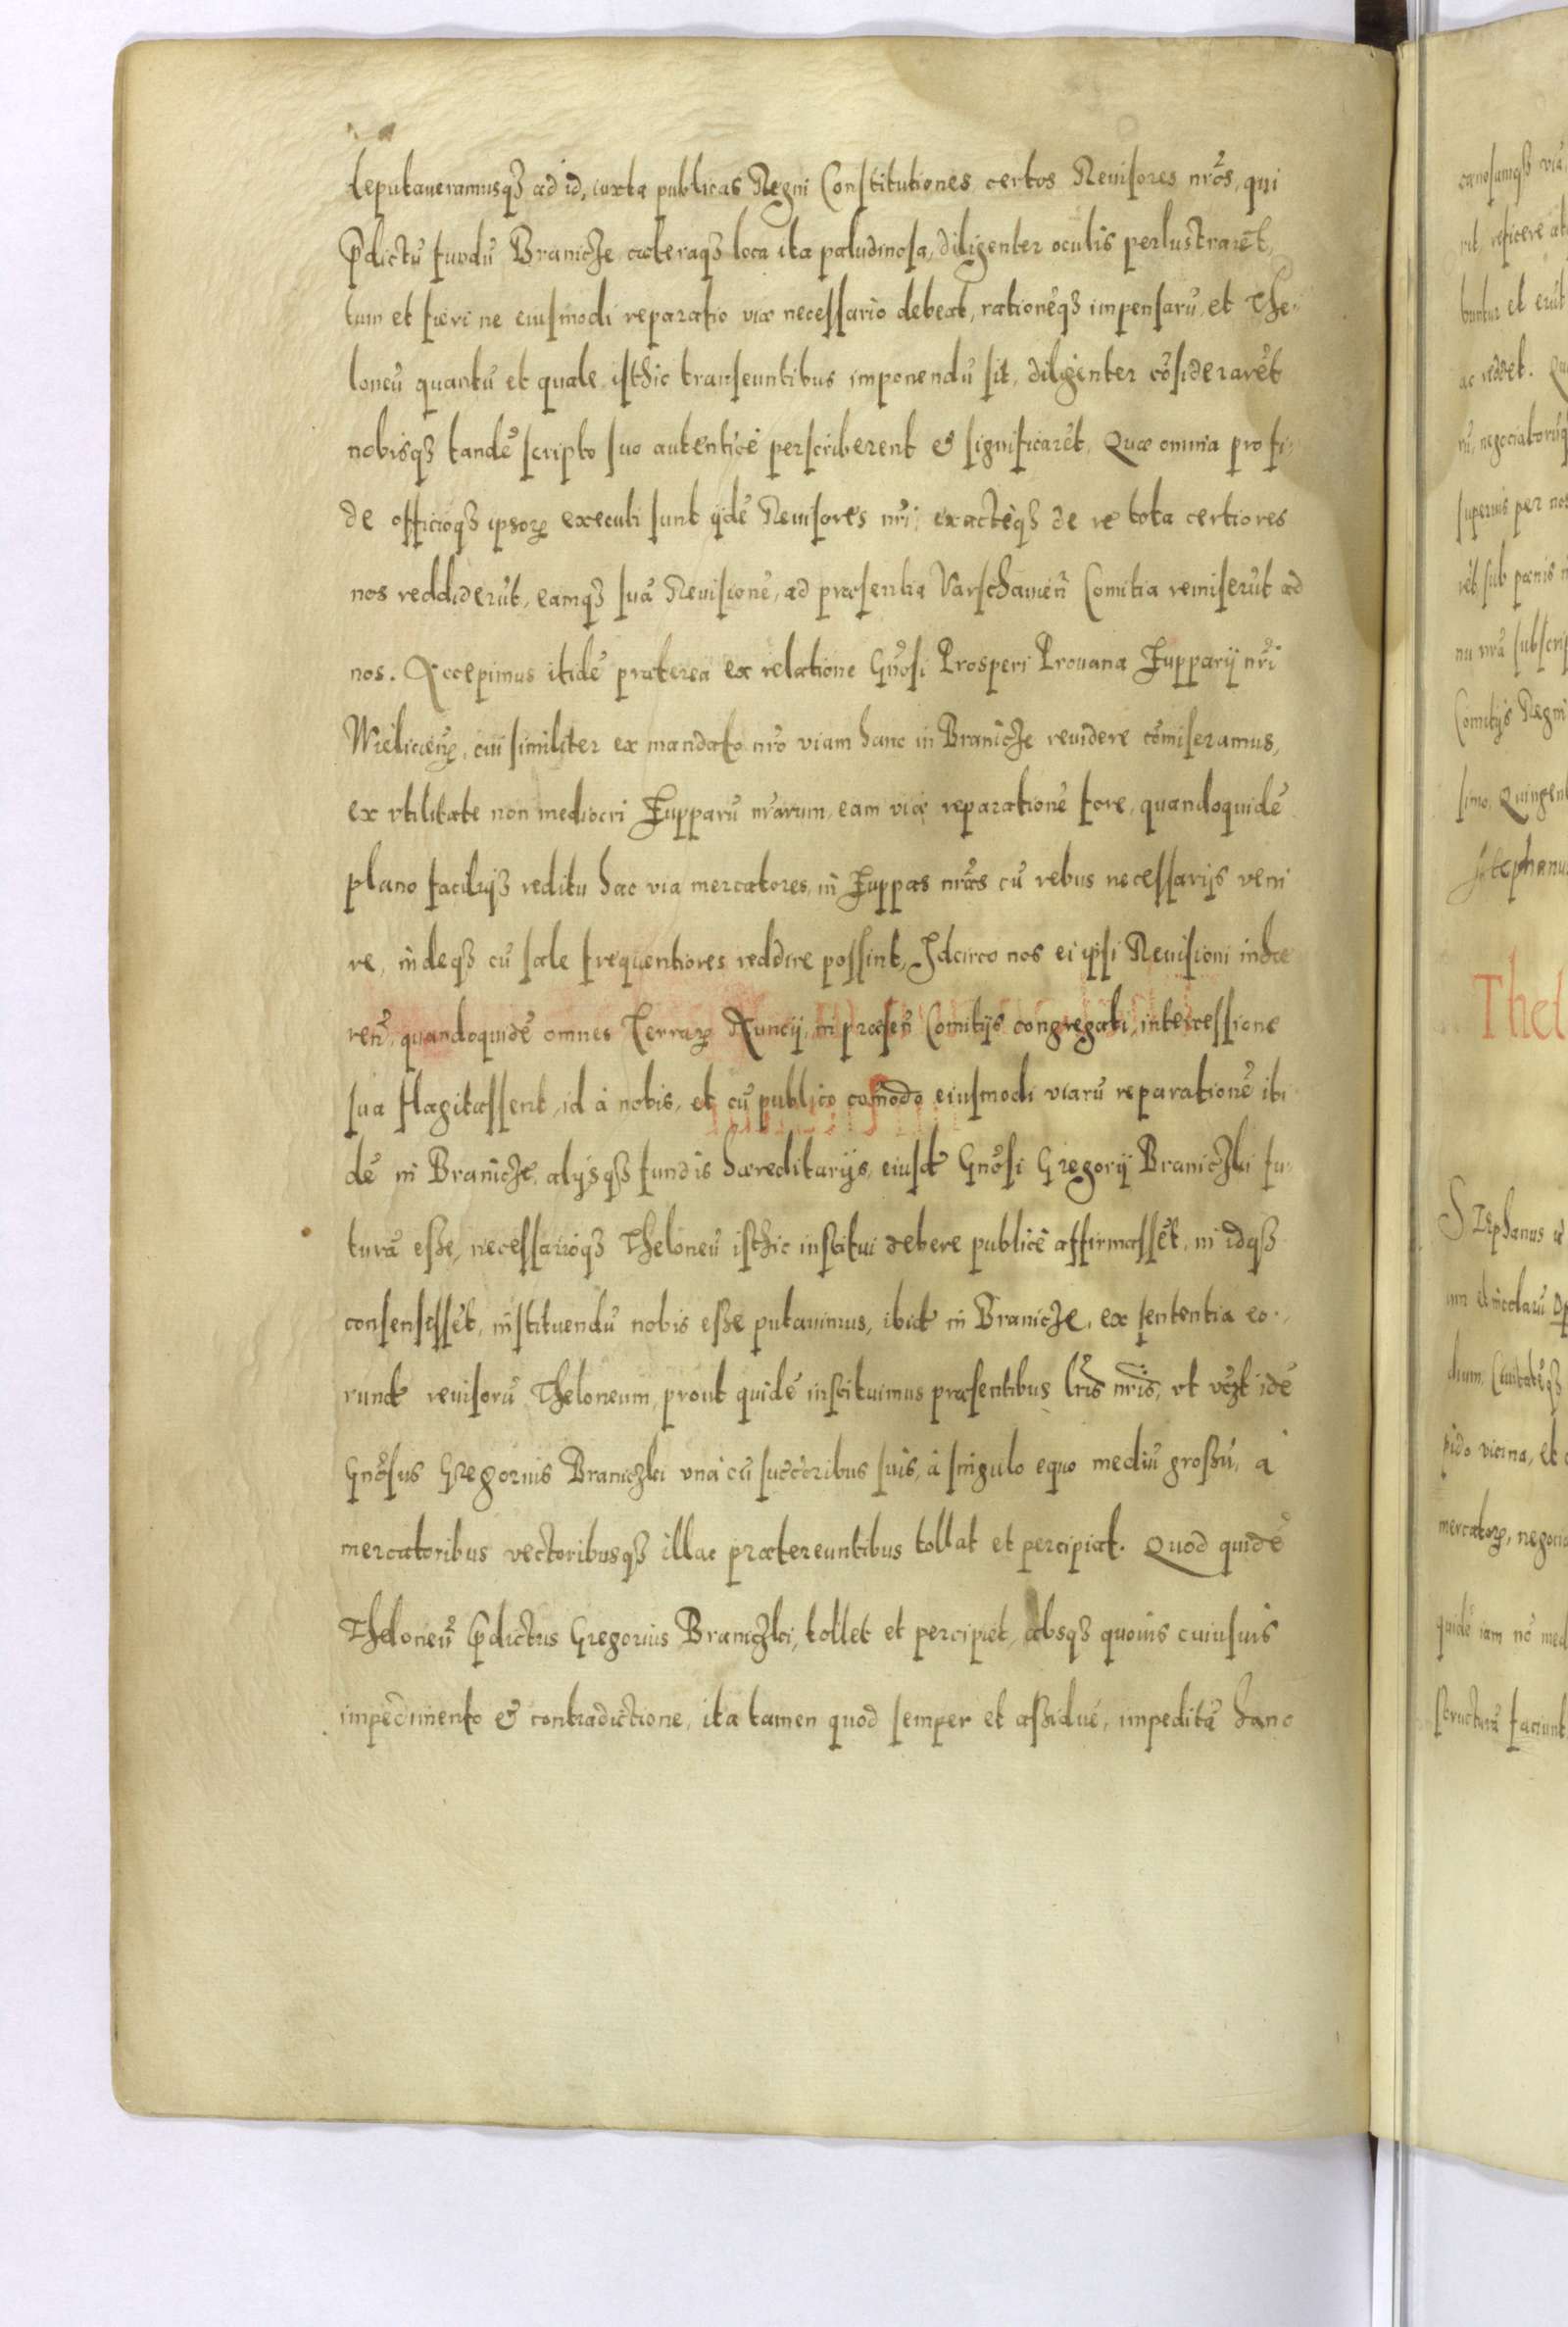 deputaueramusqȝ ad id, iuxta publicas Regni Constitutiones certos Reuisores nr̃os, qui
p̃dictũ fundũ Branicze, cæteraqȝ loca ita paludinosa, diligenter oculis perlustrarẽt,
tum et fieri ne eiusmodi reparatio viæ necessario debeat, rationẽqȝ impensarũ, et The-
loneũ quantũ et quale isthic transeuntibus imponendũ sit, diligenter cõsiderarẽt
nobisqȝ tandẽ scripto suo autenticè perscriberent & significarẽt. Quæ omnia pro fi-
de officioqȝ ipsoꝝ executi sunt ijdẽ Reuisores nr̃i, exactèqȝ de re tota certiores
nos reddiderũt, eamqȝ suã Reuisionẽ, ad præsentia Varschauieñ Comitia remiserũt ad
nos. Accepimus itidẽ præterea ex relatione Gñosi Prosperi Prouana Zupparij nr̃i
Wielicieñ, cui similiter ex mandato nr̃o viam hanc in Branicze reuidere cõmiseramus,
ex vtilitate non mediocri Zupparũ nr̃arum, eam viæ reparationẽ fore, quandoquidẽ
plano faciliqȝ reditu hac via mercatores, in Zuppas nr̃as cũ rebus necessarijs veni
re, indeqȝ cũ sale frequentiores reddire possint. Idcirco nos ei ipsi Reuisioni inhæ
reñ, quandoquidẽ omnes Terraꝝ Nuncij, in præseñ Comitijs congregati, intercessione
sua flagitassent, id à nobis, et cũ publico cõmodo eiusmodi viarũ reparationẽ ibi
dẽ in Branicze, alijsqȝ fundis hæreditarijs, eiusd̃ Gñosi Gregorij Braniczki fu-
turã esse, necessarioqȝ Theloneũ isthic institui debere publicè affirmassẽt, in idqȝ
consensissẽt, instituendũ nobis esse putauimus, ibid̃ in Branicze, ex sententia eo-
rund̃ reuisorũ Theloneum, prout quidẽ instituimus præsentibus lr̃is nr̃is, vt vcȝt idẽ
Gñosus Gregorius Braniczki vnà cũ succ̃oribus suis, à singulo equo mediũ grossũ, à
mercatoribus vectoribusqȝ illac prætereuntibus tollat et percipiat. Quod quidẽ
Theloneũ p̃dictus Gregorius Braniczki, tollet et percipiet, absqȝ quouis cuiusuis
impedimento & contradictione, ita tamen quod semper et assiduè, impeditã hanc